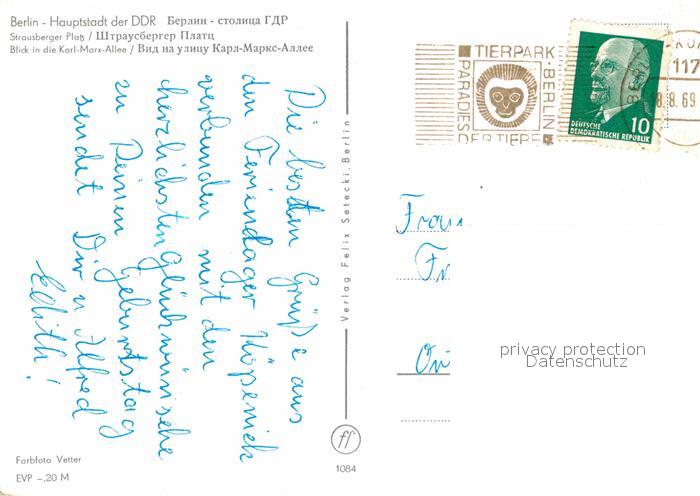 Berlin - Hauptstadt der DDR Берлин - столица ГДР
Strausberger Platz / Штраусбергер Платц
Blick in die Karl-Marx-Allee / Вид на улицу Карл-Маркс-Аллее
TIERPARK · BERLIN
PARADIES DER TIERE
117
8.8.69
10
DEUTSCHE
DEMOKRATISCHE REPUBLIK
Die besten Grüße aus
dem Ferienlager Köpenick
verbunden mit den
herzlichsten Glückwünsche
zu Deinem Geburtstag
sendet Dir u Alfred
Edith!
Verlag Felix Setecki, Berlin
ff
1084
Frau
Fr
privacy protection
Datenschutz
Farbfoto Vetter
EVP -,20 M